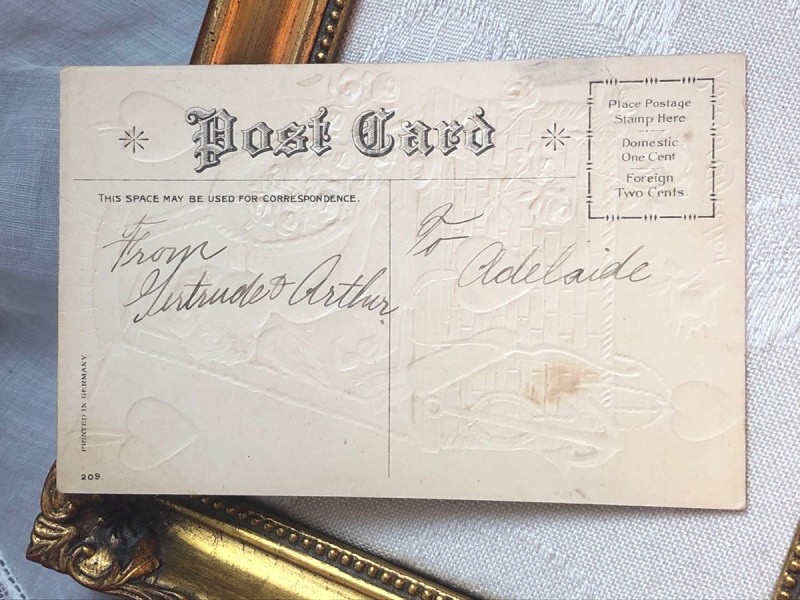 Post Card
Place Postage
Stamp Here
Domestic
One Cent
Foreign
Two Cents.
THIS SPACE MAY BE USED FOR CORRESPONDENCE.
From
Gertrude & Arthur
To
Adelaide
PRINTED IN GERMANY
209